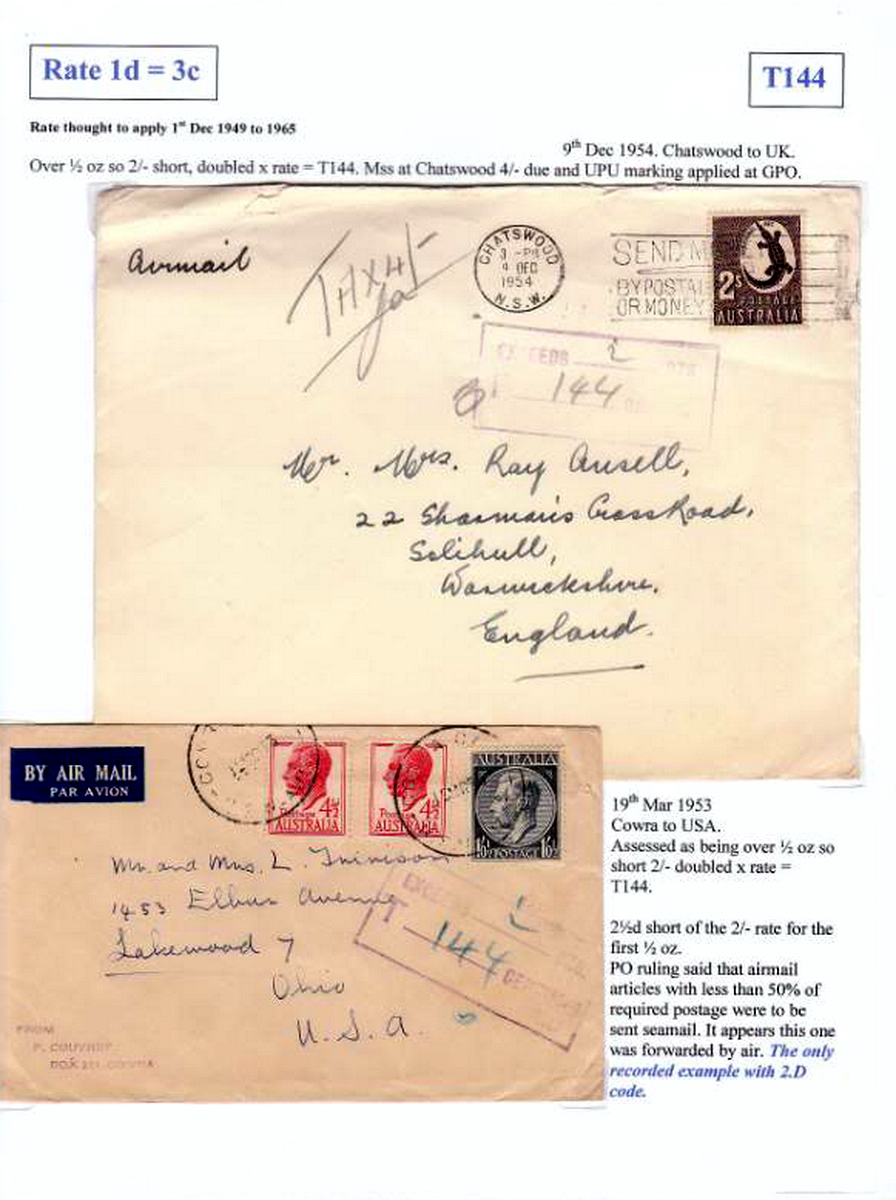 Rate 1d = 3c
T144
Rate thought to apply 1st Dec 1949 to 1965
9th Dec 1954. Chatswood to UK.
Over ½ oz so 2/- short, doubled x rate = T144. Mss at Chatswood 4/- due and UPU marking applied at GPO.
Airmail
CHATSWOOD
9 DEC
1954
N.S.W.
SEND M
BY POSTAL
OR MONEY
2s
POSTAGE
AUSTRALIA
EXCEEDS
144
Mr. Mrs. Ray Ansell,
22 Sharman's Cross Road,
Solihull,
Warwickshire.
England.
BY AIR MAIL
PAR AVION
Postage 4½d
AUSTRALIA
Postage 4½d
AUSTRALIA
AUSTRALIA
1/0½ POSTAGE 1/0½
Mr. and Mrs. L.
1453 Elbur Avenue
Lakewood 7
Ohio
U.S.A.
EXCEEDS
T 144
FROM
BOX 251 COWRA
19th Mar 1953
Cowra to USA.
Assessed as being over ½ oz so
short 2/- doubled x rate =
T144.
2½d short of the 2/- rate for the
first ½ oz.
PO ruling said that airmail
articles with less than 50% of
required postage were to be
sent seamail. It appears this one
was forwarded by air. The only
recorded example with 2.D
code.